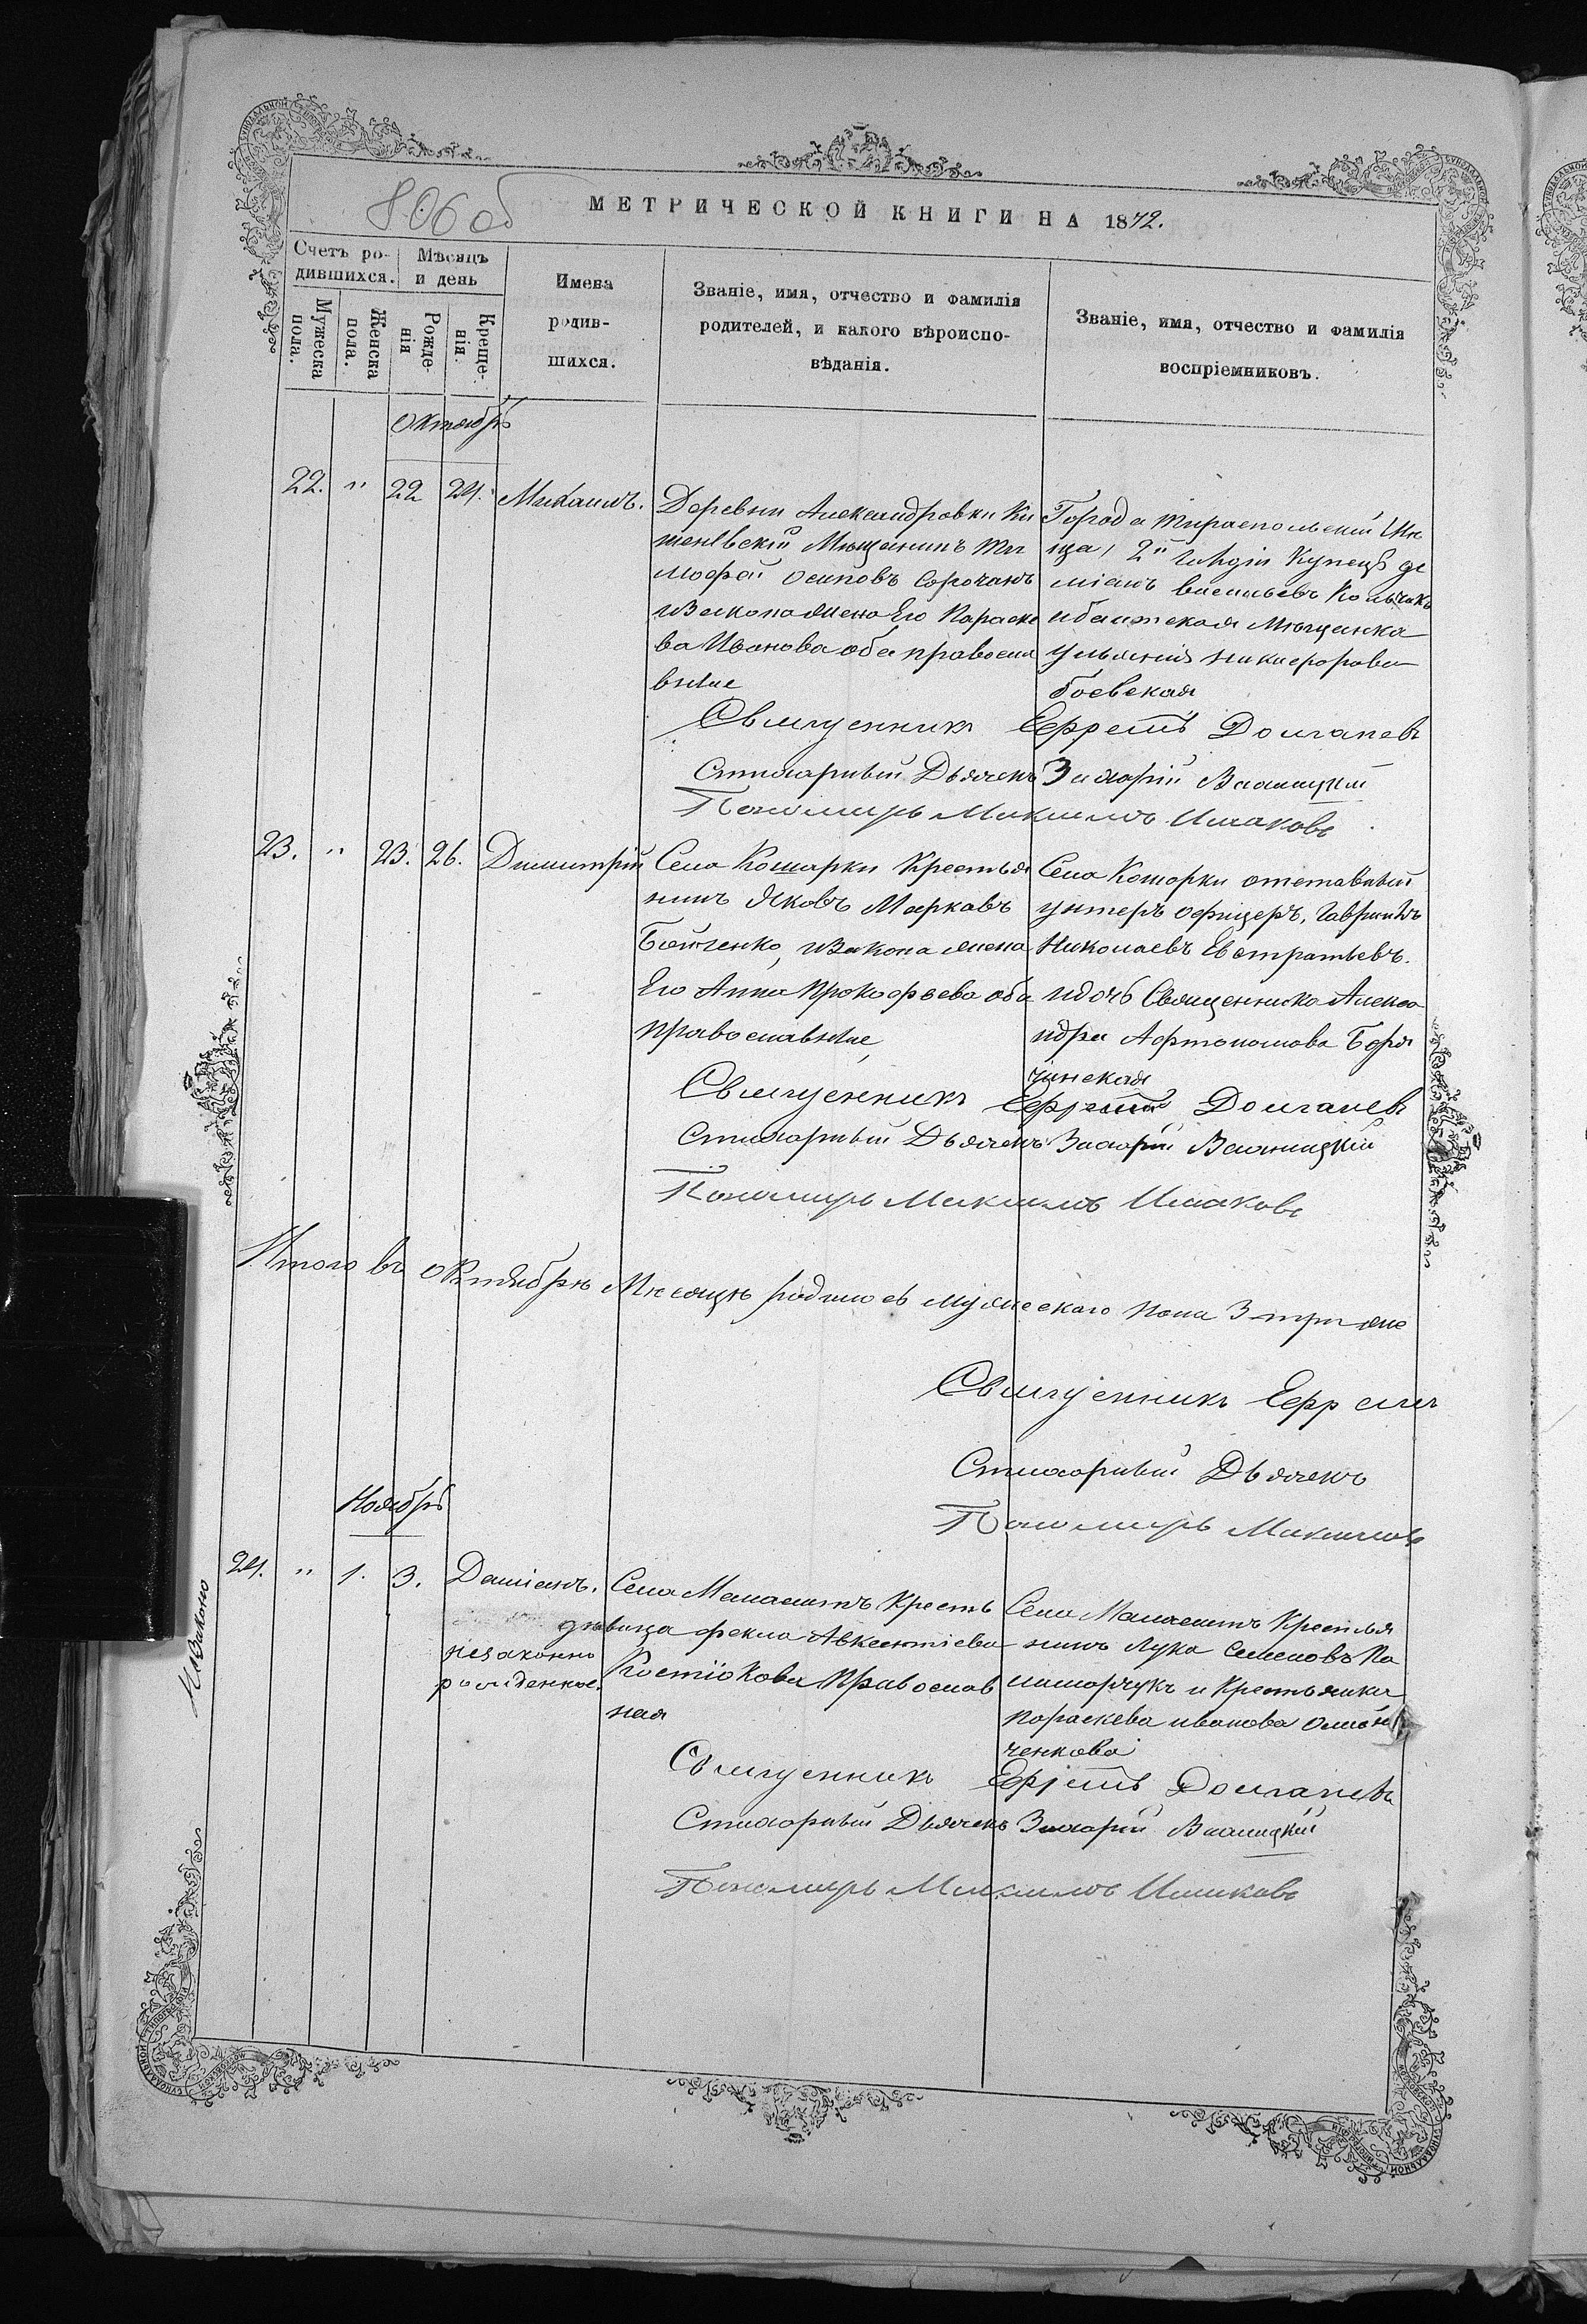 806 об
МЕТРИЧЕСКОЙ КНИГИ НА 1872.
Счетъ ро-
дившихся.
Мѣсяцъ
и день
Мужеска
пола.
Женска
пола.
Рожде-
нія
Креще-
нія.
Имена
родив-
шихся.
Званіе, имя, отчество и фамилія
родителей, и какого вѣроиспо-
вѣданія.
Званіе, имя, отчество и фамилія
воспріемниковъ.
Октябрь
22. " 22 24. Михаилъ.
Деревни Александровки Ки
шеневскій Мѣщанинъ Ти
мофей Осиповъ Сорочанъ
изакона жена Его Параске
ва Иванова оба правосла
вные
Города Тираспольскій
2й Гильдіи Купецъ Де
міанъ Васильевъ Колчакъ
и балтская Мѣщанка
Ульянія Никифорова
боевская
Священникъ Ефремъ Долганевъ
Стихарный Дьячекъ Захарій
Пономарь Михаилъ
23. " 23. 26. Димитрій
Села Кошарки Крестья
нинъ Яковъ Марковъ
изакона жена
Его Анна Прокофьева оба
православные,
Села Кошарки отставный
унтеръ офицеръ, Гавріилъ
Николаевъ Евстратьевъ.
и дочь Священника Алекса
ндра Афтономова Боря
чинская
Священникъ Ефремъ Долганевъ
Стихарный Дьячекъ Захарій
Пономарь Михаилъ
Итого въ Октябрѣ Мѣсяцѣ родилось мужескаго пола 3 три же
Священникъ Ефремъ
Стихарный Дьячекъ
Пономарь Михаилъ
Ноябрь
24. " 1. 3. Даміанъ.
незаконно
рожденное.
Незаконно
Села Малаештъ Кресть
дѣвица фекла Авксентіева
Костюкова Православ
ная
Села Малаештъ Крестья
нинъ Лука Семеновъ Па
ламорчукъ и Крестьянка
Параскева иванова
ченкова
Священникъ Ефремъ Долганевъ
Стихарный Дьячекъ Захарій
Пономарь Михаилъ